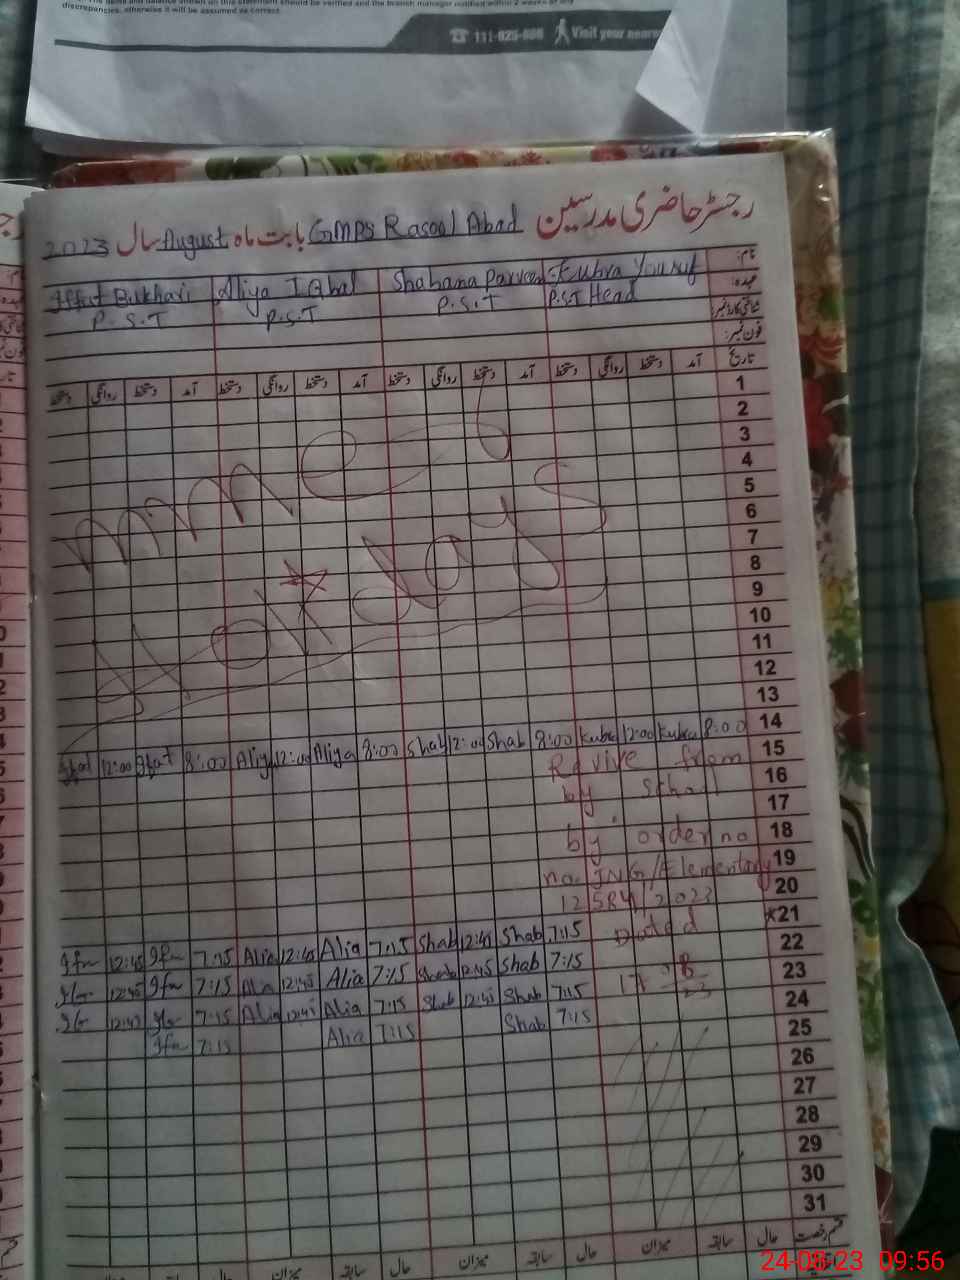 discrepancies, otherwise it will be assumed as correct.
111-825-888 Visit your neares
رجسٹر حاضری مدرسین GMPS Rasool Abad بابت ماہ August سال 2023
نام: Kubra Yousuf Shabana Parveen Aliya Iqbal Iffut Bukhari
عہدہ: P.S.T Head P.S.T P.S.T P.S.T
شناختی کارڈ نمبر:
فون نمبر:
تاریخ آمد دستخط روانگی دستخط آمد دستخط روانگی دستخط آمد دستخط روانگی دستخط آمد دستخط روانگی دستخط
1
2
3
4
5
6
7
8
9
10
11
12
13
Holidays
14 8:00 Kubra 12:00 Kubra 8:00 Shab 12:00 Shab 8:00 Aliya 12:00 Aliya 8:00 Ifat 12:00 Ifat
15 Relive from
16 by
17
18 by order no
19 no. JNG/Elementary
20 12584/2023
*21 Dated
22 7:15 Shab 12:45 Shab 7:15 Alia 12:45 Alia 7:15 Ifn 12:45 Ifn
23 17 8/23 7:15 Shab 12:45 Shab 7:15 Alia 12:45 Alia 7:15 Ifn 12:45
24 7:15 Shab 12:45 Shab 7:15 Alia 12:45 Alia 7:15 12:45
25 7:15 Shab 7:15 Alia 7:15 Ifn
26
27
28
29
30
31
قسم رخصت حال سابقہ میزان حال سابقہ میزان حال سابقہ میزان حال سابقہ
24-08-23 09:56